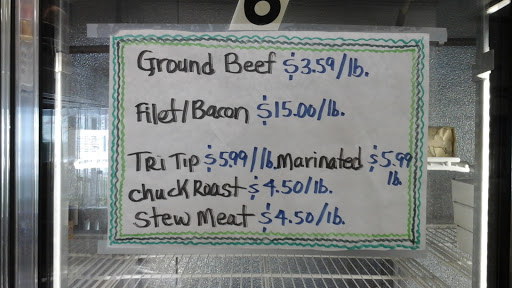 6
Ground Beef $3.59/lb.
Filet/Bacon $15.00/lb.
Tri Tip $5.99/lb. Marinated $5.99 lb.
chuck Roast $4.50/lb.
Stew Meat $4.50/lb.